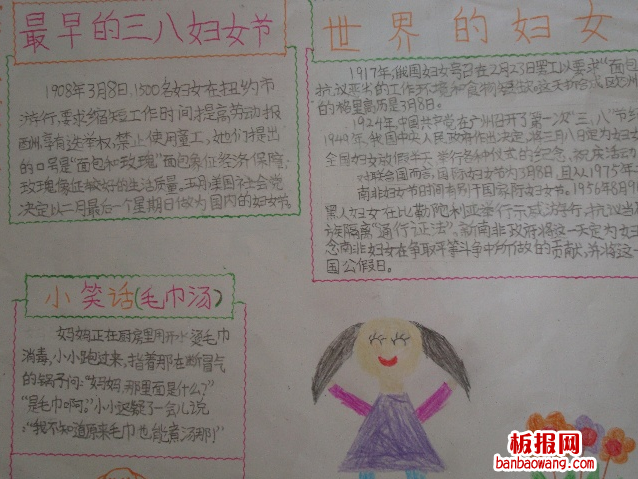 最早的三八妇女节
1908年3月8日,1500名妇女在纽约市
游行,要求缩短工作时间提高劳动报
酬,享有选举权,禁止使用童工,她们提出
的口号是“面包和玫瑰”面包象征经济保障,
玫瑰象征较好的生活质量。五月,美国社会党
决定以二月最后一个星期日做为国内的妇女节。
世界的妇女
1917年,俄国妇女号召在2月23日罢工以要求“面包
抗议恶劣的工作环境和食物
的格里高历是3月8日。
1924年,中国共产党在广州召开了第一次“三、八”节
1949年,我国中央人民政府作出决定,将三月八日定为妇
全国妇女放假半天,举行各种仪式的纪念、祝庆活动
对联合国而言,国际妇女节为3月8日,且从1975年
南非妇女节时间有别于国际妇女节。1956年8月9
黑人妇女在比勒陀利亚举行示威游行,抗议当
误隔离“通行证法”。新南非政府将这一天定为妇
念南非妇女在争取平等斗争中所做的贡献,并将这一
国公假日。
小笑话(毛巾汤)
妈妈正在厨房里用开水烫毛巾
消毒,小小跑过来,指着那在断冒气
的锅子问:“妈妈,那里面是什么?”
“是毛巾啊。”小小迟疑了一会儿说
:“我不知道原来毛巾也能煮汤那!”
板报网
banbaowang.com